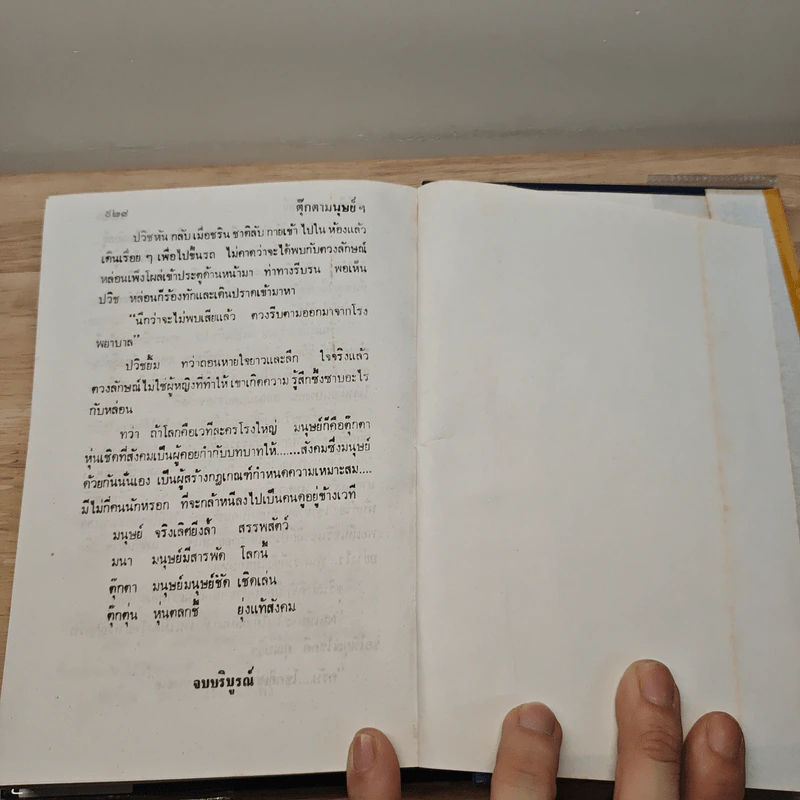 ๕๒๙ ตุ๊กตามนุษย์ ๆ
ปวิชหัน กลับ เมื่อชริน ชาติลับ กายเข้า ไปใน ห้องแล้ว
เดินเรื่อย ๆ เพื่อไปขึ้นรถ ไม่คาดว่าจะได้พบกับดวงลักษณ์
หล่อนเพิ่งโผล่เข้าประตูด้านหน้ามา ท่าทางรีบรน พอเห็น
ปวิช หล่อนก็ร้องทักและเดินปราดเข้ามาหา
“นึกว่าจะไม่พบเสียแล้ว ดวงรีบตามออกมาจากโรง
พยาบาล”
ปวิชยิ้ม ทว่าถอนหายใจยาวและลึก ใจจริงแล้ว
ดวงลักษณ์ ไม่ใช่ผู้หญิงที่ทำให้ เขาเกิดความ รู้สึกซึ้งซาบอะไร
กับหล่อน
ทว่า ถ้าโลกคือเวทีละครโรงใหญ่ มนุษย์ก็คือตุ๊กตา
หุ่นเชิดที่สังคมเป็นผู้คอยกำกับบทบาทให้.......สังคมซึ่งมนุษย์
ด้วยกันนั่นเอง เป็นผู้สร้างกฎเกณฑ์กำหนดความเหมาะสม....
มีไม่กี่คนนักหรอก ที่จะกล้าหนีลงไปเป็นคนดูอยู่ข้างเวที
มนุษย์ จริงเลิศยิ่งล้ำ สรรพสัตว์
มนา มนุษย์มีสารพัด โลกนี้
ตุ๊กตา มนุษย์มนุษย์ชัด เชิดเล่น
ตุ๊กตุ่น หุ่นตลกชี้ ยุ่งแท้สังคม
จบบริบูรณ์